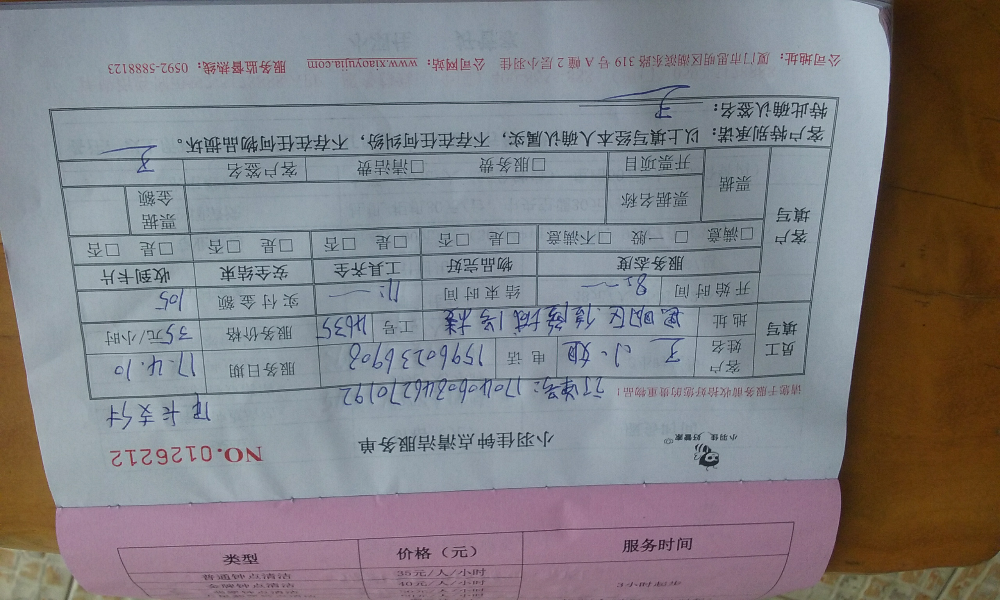 小羽佳 好管家
小羽佳钟点清洁服务单
NO.0126212
订单号：17040608467019２
准卡支付
请您于服务前收拾好您的贵重物品！
员工填写
客户姓名 王小姐 电话 15960236908 服务日期 17.4.10
地址 思明区 1号楼 工号 4635 服务价格 35元/小时
开始时间 8:— 结束时间 11:— 实付金额 105
客户填写
服务态度 物品完好 工具齐全 安全结束 收到卡片
□满意 □一般 □不满意 □是 □否 □是 □否 □是 □否 □是 □否
票据 票据名称 票据金额
开票项目 □服务费 □清洁费 客户签名 王
客户特别承诺：以上填写经本人确认属实，不存在任何纠纷，不存在任何物品损坏。
特此确认签名： 王
公司地址：厦门市思明区湖滨东路 319 号 A 幢 2 层小羽佳 公司网站：www.xiaoyujia.com 服务监督热线：0592-5888123
类型 价格（元） 服务时间
普通钟点清洁 35元/人/小时
40元/人/小时
3小时起步